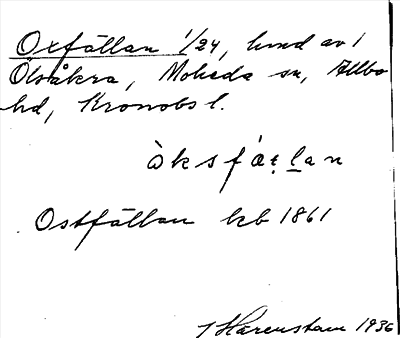 Oxfällan 1/24, hmd av 1
Ölsåkra, Moheda sn, Allbo
hd, Kronobs l.
òksfæ̣̀l̲an
Ostfällan kb 1861
J Harenstam 1936